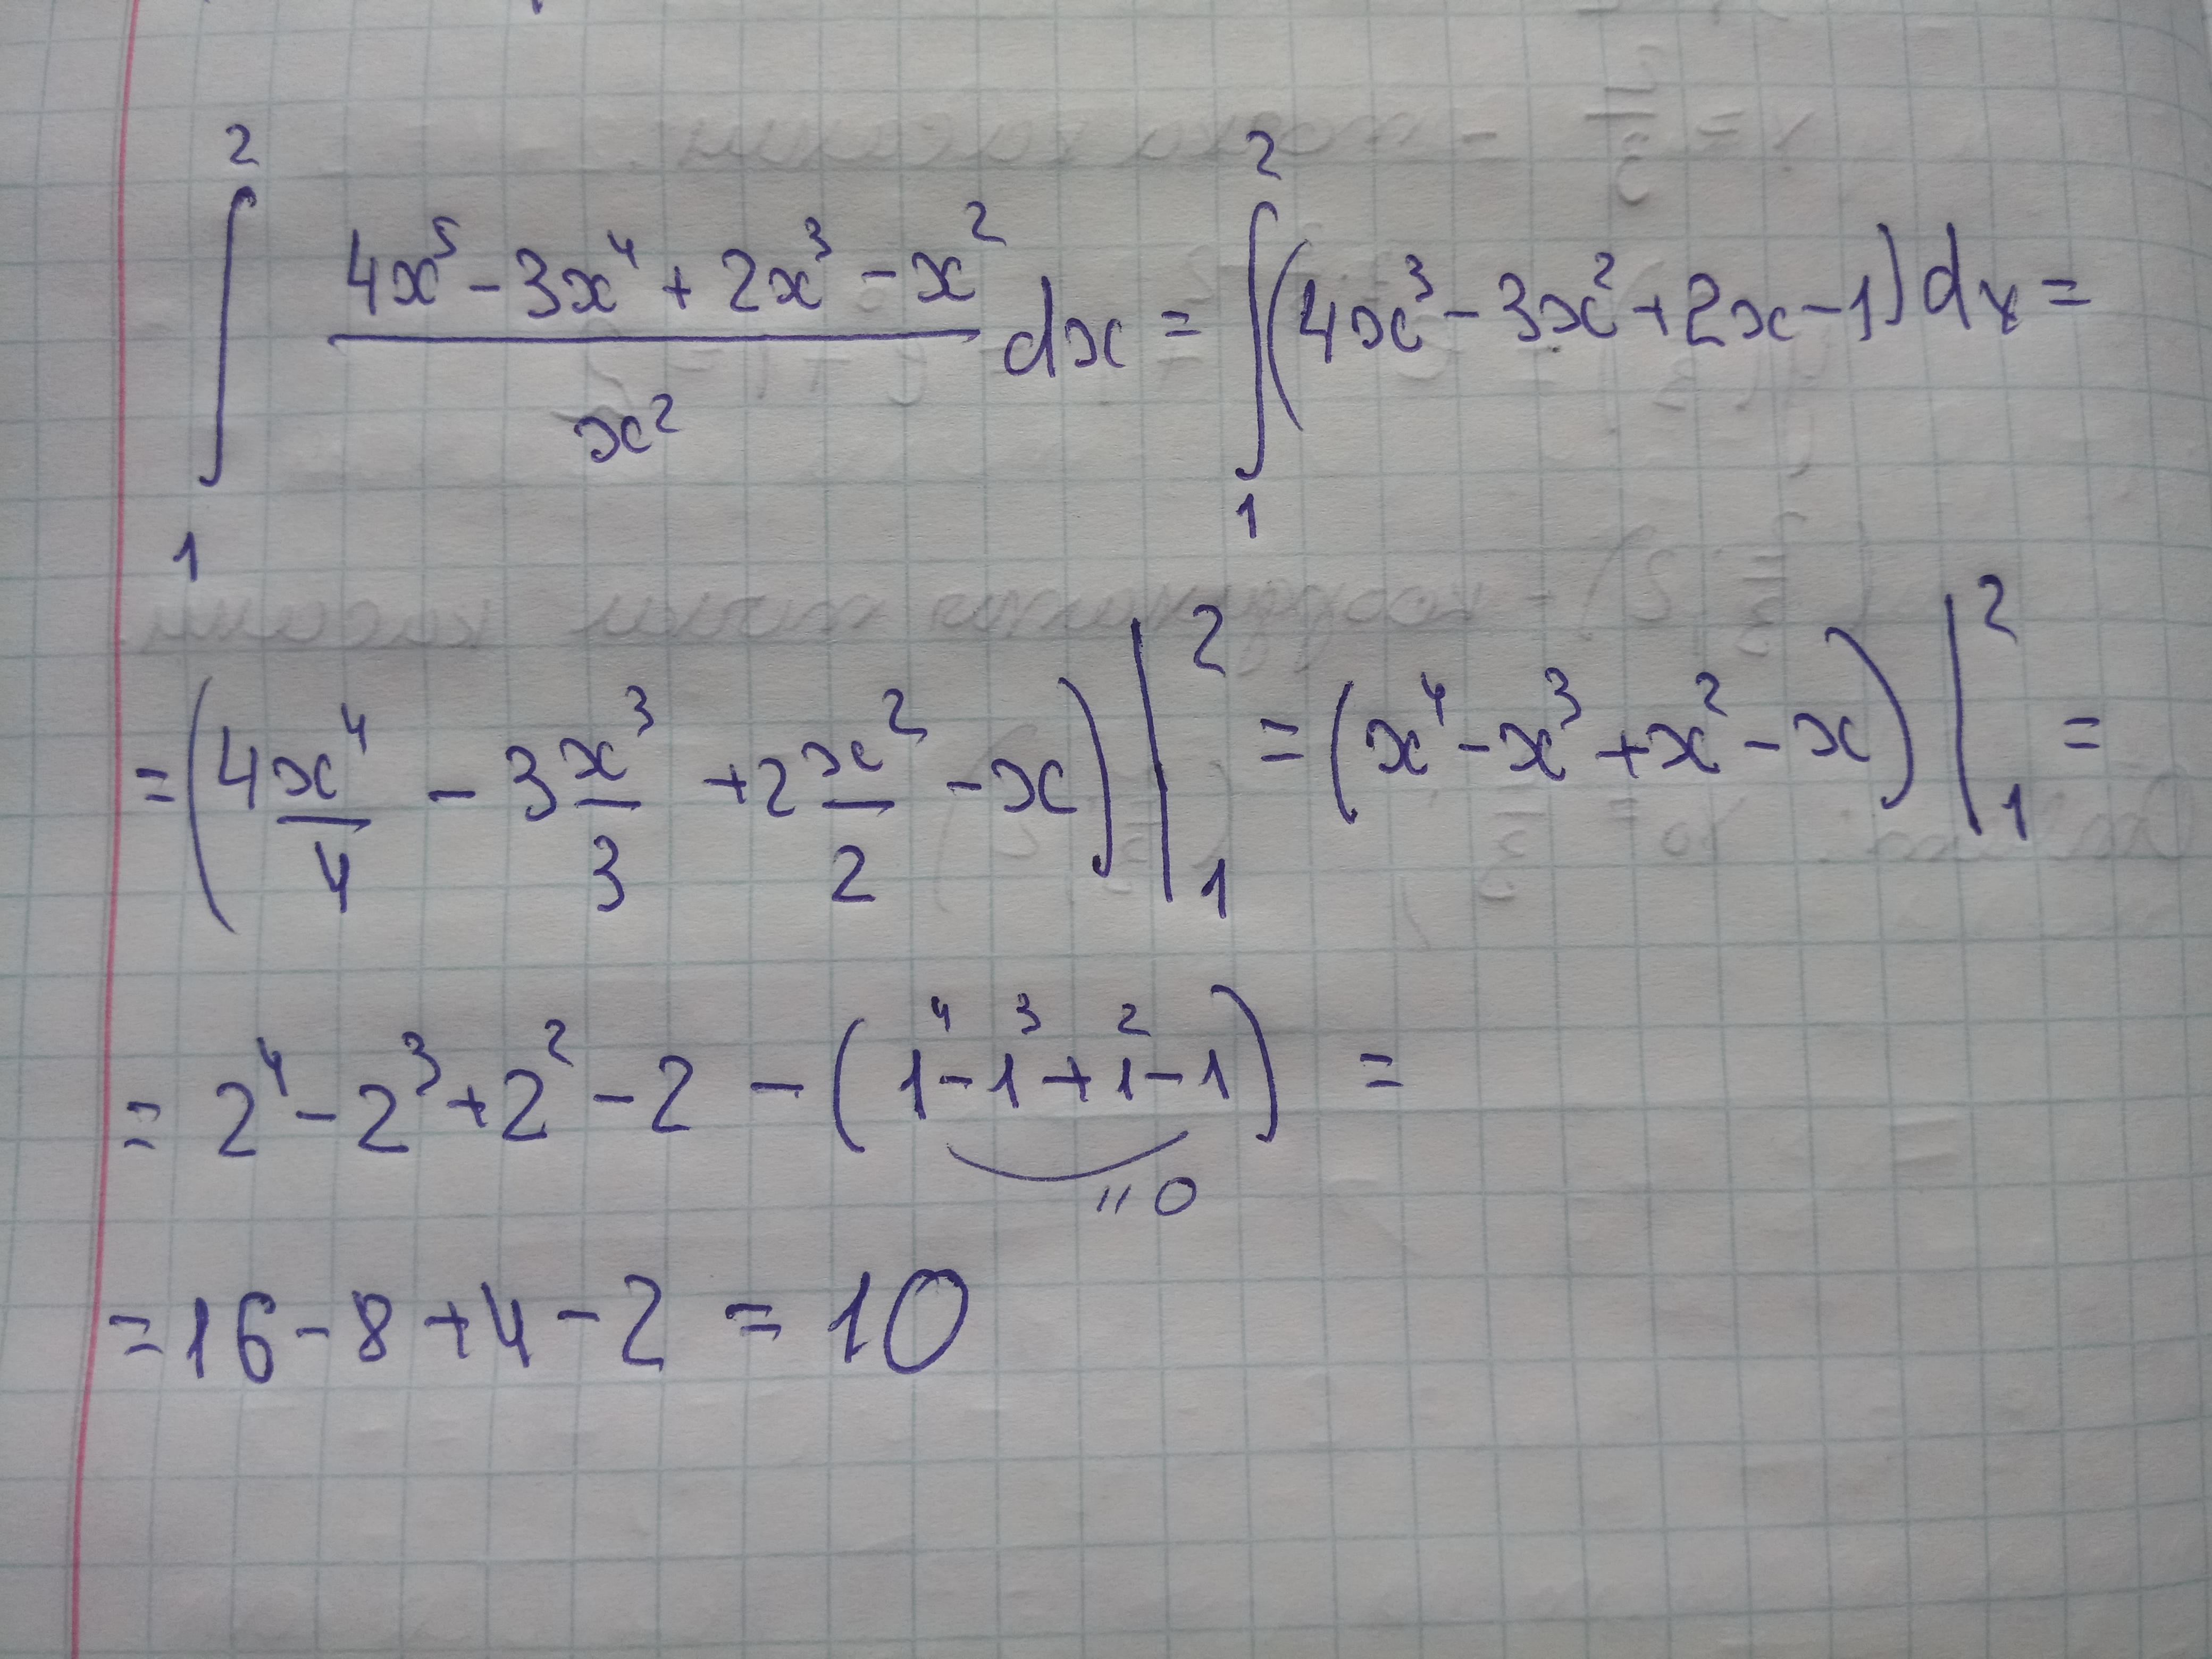 ∫₁² (4x⁵ - 3x⁴ + 2x³ - x²)/x² dx = ∫₁² (4x³ - 3x² + 2x - 1) dx =
= (4 x⁴/4 - 3 x³/3 + 2 x²/2 - x) |₁² = (x⁴ - x³ + x² - x) |₁² =
= 2⁴ - 2³ + 2² - 2 - (1⁴ - 1³ + 1² - 1) =
" 0
= 16 - 8 + 4 - 2 = 10